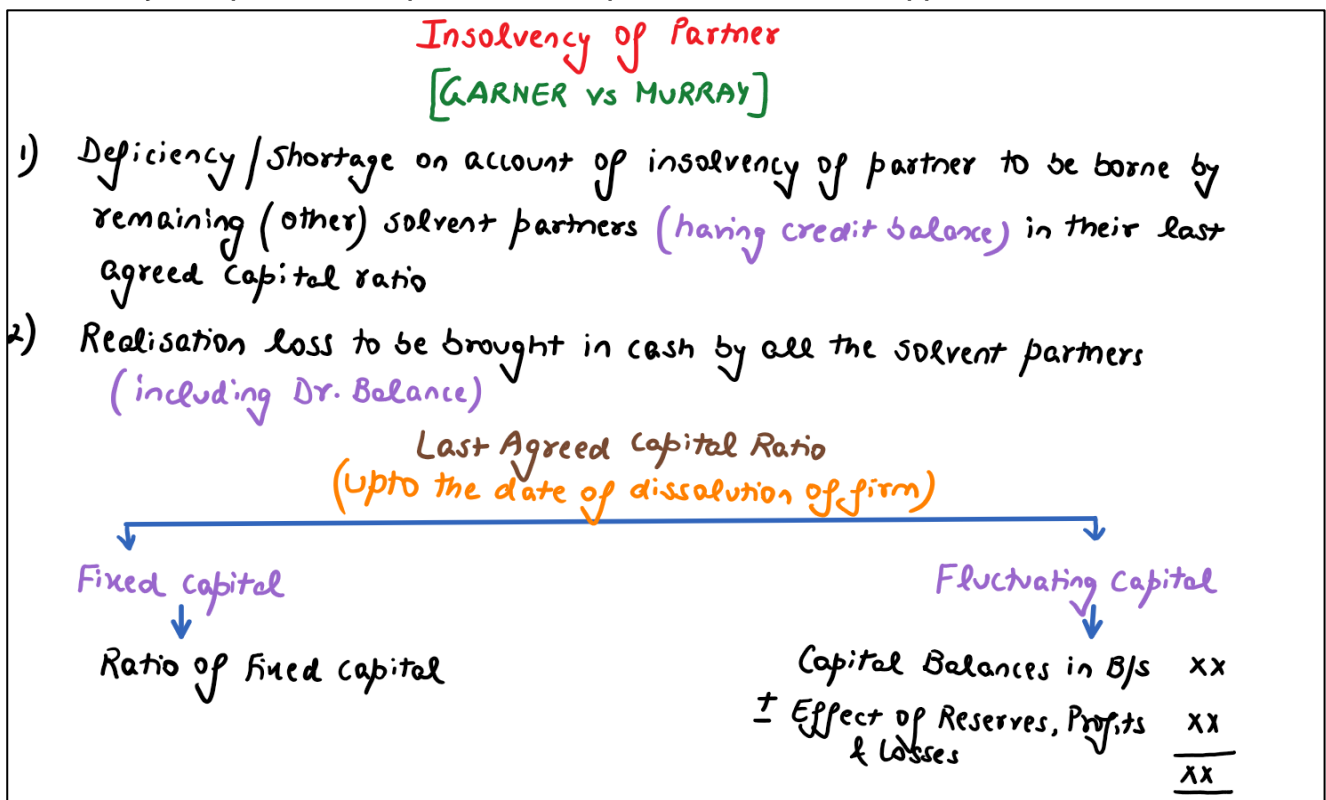 Insolvency of Partner
[GARNER vs MURRAY]
1) Deficiency/Shortage on account of insolvency of partner to be borne by
remaining (other) solvent partners (having credit balance) in their last
agreed capital ratio
2) Realisation loss to be brought in cash by all the solvent partners
(including Dr. Balance)
Last Agreed Capital Ratio
(upto the date of dissolution of firm)
Fixed capital
Fluctuating Capital
Ratio of Fixed capital
Capital Balances in B/s xx
± Effect of Reserves, Profits xx
& Losses
xx